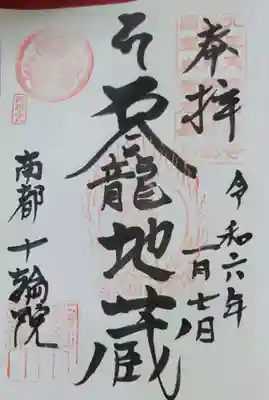 奉拝
令和六年
一月七日
龍地蔵
南都 十輪院